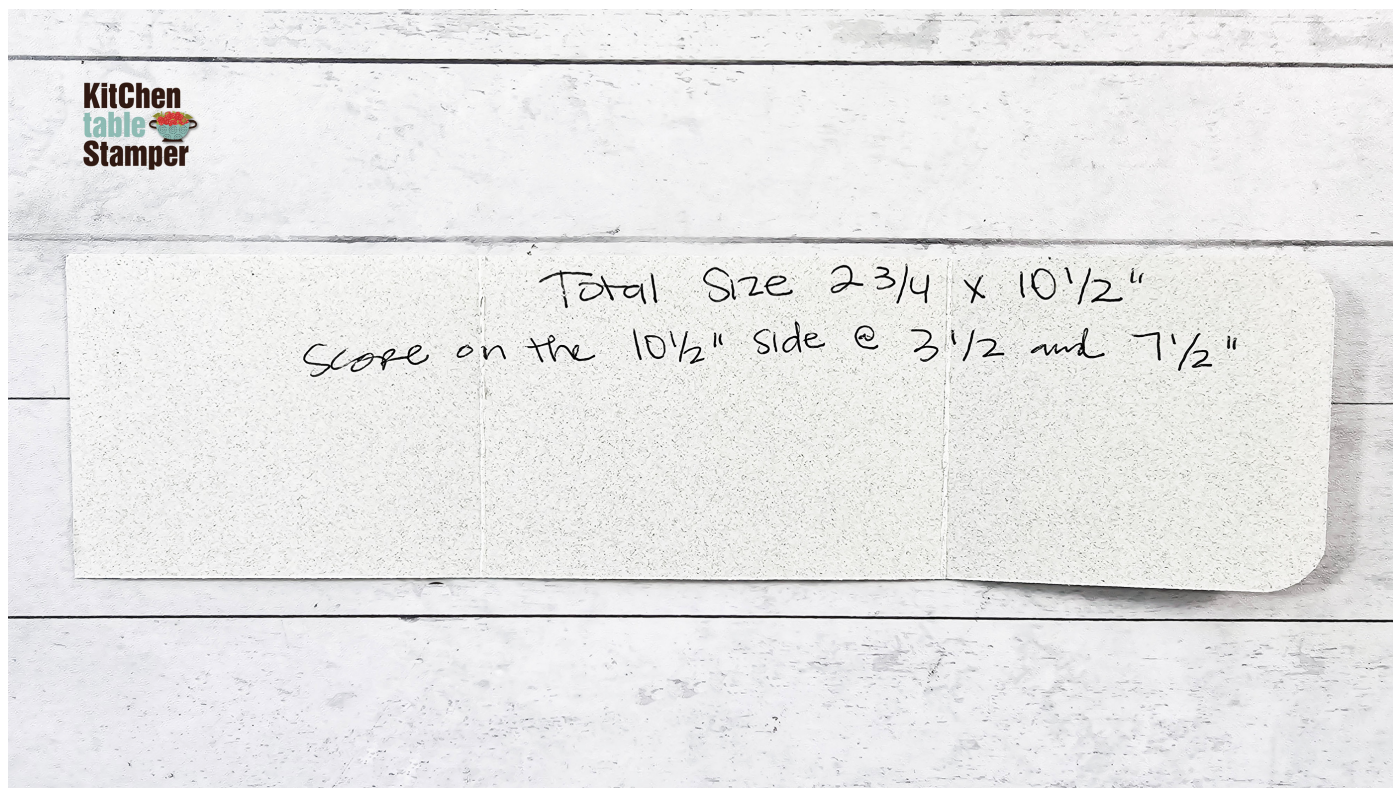 KitChen
table
Stamper
Total Size 2 3/4 x 10 1/2"
Score on the 10 1/2" side @ 3 1/2 and 7 1/2"